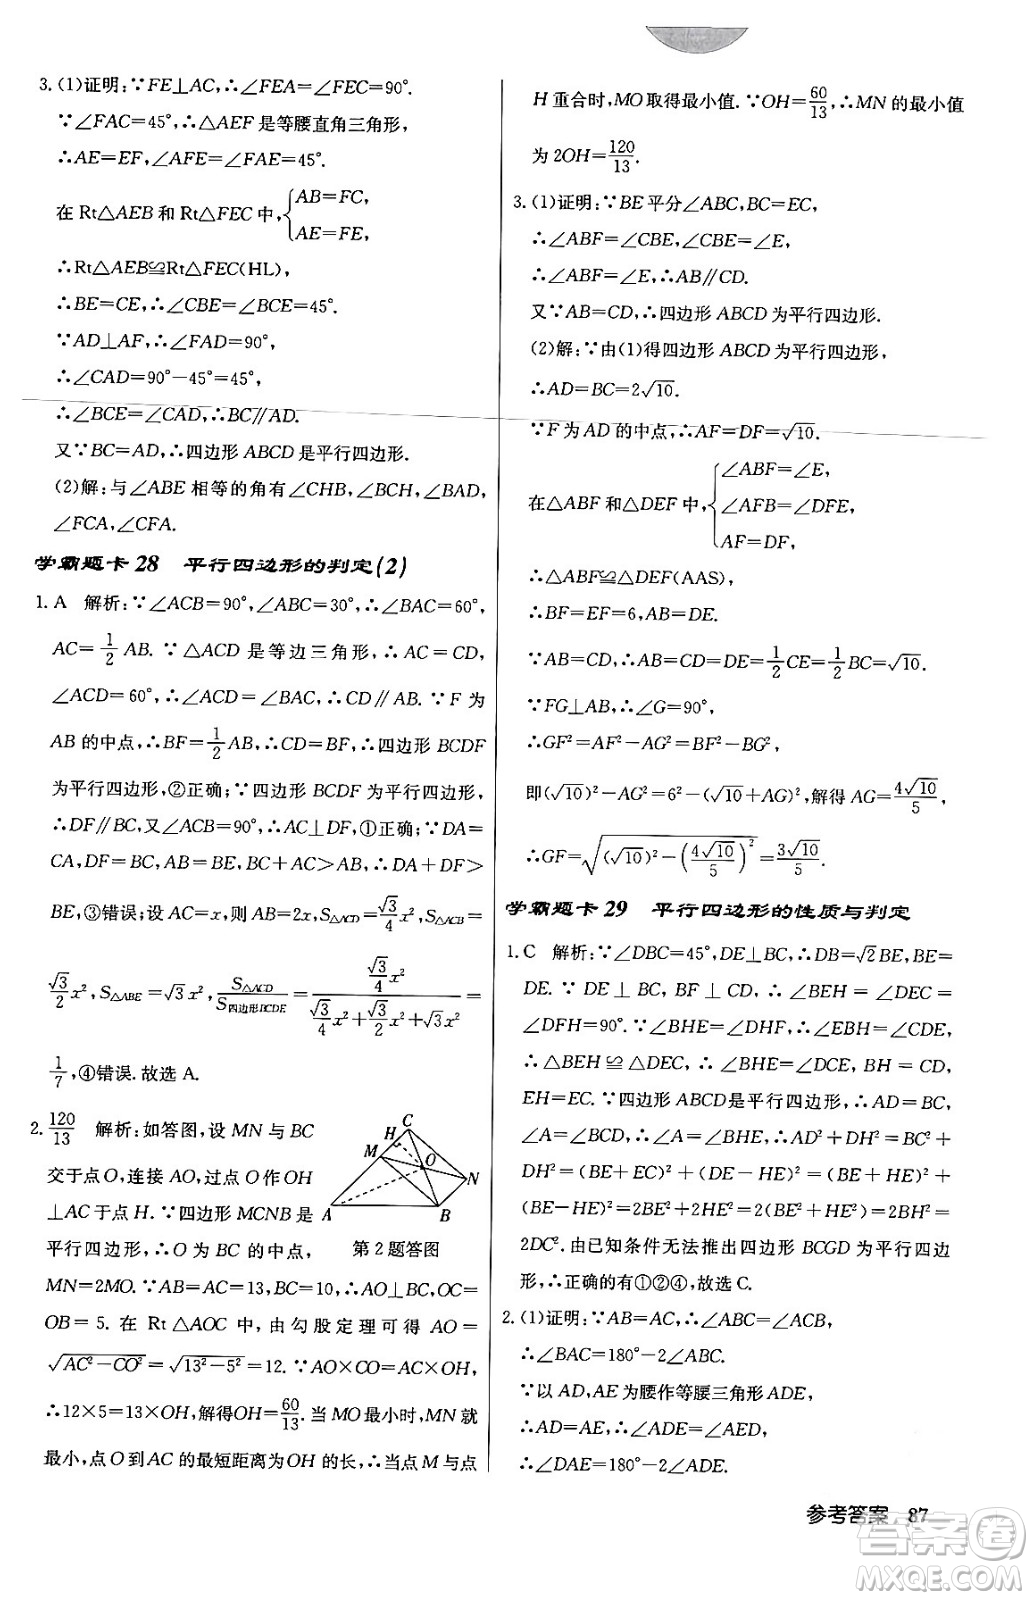 3. (1)证明:∵FE⊥AC,∴∠FEA=∠FEC=90°.
∵∠FAC=45°,∴△AEF是等腰直角三角形,
∴AE=EF,∠AFE=∠FAE=45°.
在 Rt△AEB 和 Rt△FEC 中,{AB=FC, AE=FE,
∴Rt△AEB≌Rt△FEC(HL),
∴BE=CE,∴∠CBE=∠BCE=45°.
∵AD⊥AF,∴∠FAD=90°,
∴∠CAD=90°-45°=45°,
∴∠BCE=∠CAD,∴BC∥AD.
又∵BC=AD,∴四边形 ABCD 是平行四边形.
(2)解:与∠ABE 相等的角有∠CHB,∠BCH,∠BAD,
∠FCA,∠CFA.
学霸题卡 28 平行四边形的判定(2)
1. A 解析:∵∠ACB=90°,∠ABC=30°,∴∠BAC=60°,
AC=1/2 AB. ∵△ACD 是等边三角形,∴AC=CD,
∠ACD=60°,∴∠ACD=∠BAC,∴CD∥AB. ∵F 为
AB 的中点,∴BF=1/2 AB,∴CD=BF,∴四边形 BCDF
为平行四边形,②正确;∵四边形 BCDF 为平行四边形,
∴DF∥BC,又∠ACB=90°,∴AC⊥DF,①正确;∵DA=
CA,DF=BC,AB=BE,BC+AC>AB,∴DA+DF>
BE,③错误;设 AC=x,则 AB=2x,S△ACD=√3/4 x²,S△ACB=
√3/2 x²,S△ABE=√3 x²,S△ACD/S四边形BCDE=(√3/4 x²)/(√3/4 x²+√3/2 x²+√3 x²)=
1/7,④错误.故选 A.
2. 120/13 解析:如答图,设 MN 与 BC
交于点 O,连接 AO,过点 O 作 OH
⊥AC 于点 H. ∵四边形 MCNB 是
平行四边形,∴O 为 BC 的中点,
MN=2MO. ∵AB=AC=13,BC=10,∴AO⊥BC,OC=
A B C H M O N
第 2 题答图
OB=5. 在 Rt△AOC 中,由勾股定理可得 AO=
√(AC²-CO²)=√(13²-5²)=12. ∵AO×CO=AC×OH,
∴12×5=13×OH,解得OH=60/13. 当 MO最小时,MN就
最小,点 O到AC 的最短距离为OH 的长,∴当点 M 与点
H 重合时,MO取得最小值.∵OH=60/13,∴MN 的最小值
为 2OH=120/13.
3. (1)证明:∵BE平分∠ABC,BC=EC,
∴∠ABF=∠CBE,∠CBE=∠E,
∴∠ABF=∠E,∴AB∥CD.
又∵AB=CD,∴四边形 ABCD 为平行四边形.
(2)解:∵由(1)得四边形 ABCD 为平行四边形,
∴AD=BC=2√10.
∵F 为 AD 的中点,∴AF=DF=√10.
在△ABF 和△DEF 中,{∠ABF=∠E, ∠AFB=∠DFE, AF=DF,
∴△ABF≌△DEF(AAS),
∴BF=EF=6,AB=DE.
∵AB=CD,∴AB=CD=DE=1/2 CE=1/2 BC=√10.
∵FG⊥AB,∴∠G=90°,
∴GF²=AF²-AG²=BF²-BG²,
即(√10)²-AG²=6²-(√10+AG)²,解得 AG=4√10/5,
∴GF=√((√10)²-(4√10/5)²)=3√10/5.
学霸题卡 29 平行四边形的性质与判定
1. C 解析:∵∠DBC=45°,DE⊥BC,∴DB=√2 BE,BE=
DE. ∵DE⊥BC,BF⊥CD,∴∠BEH=∠DEC=
∠DFH=90°. ∵∠BHE=∠DHF,∴∠EBH=∠CDE,
∴△BEH≌△DEC,∴∠BHE=∠DCE,BH=CD,
EH=EC. ∵四边形 ABCD是平行四边形,∴AD=BC,
∠A=∠DCB,∴∠A=∠BHE,∴AD²+DH²=BC²+
DH²=(BE+EC)²+(DE-HE)²=(BE+HE)²+
(BE-HE)²=2BE²+2HE²=2(BE²+HE²)=2BH²=
2DC². 由已知条件无法推出四边形 BCGD 为平行四边
形,∴正确的有①②④,故选 C.
2. (1)证明:∵AB=AC,∴∠ABC=∠ACB,
∴∠BAC=180°-2∠ABC.
∵以 AD,AE为腰作等腰三角形 ADE,
∴AD=AE,∴∠ADE=∠AED,
∴∠DAE=180°-2∠ADE.
参考答案 87
答案圈
MXQE.COM